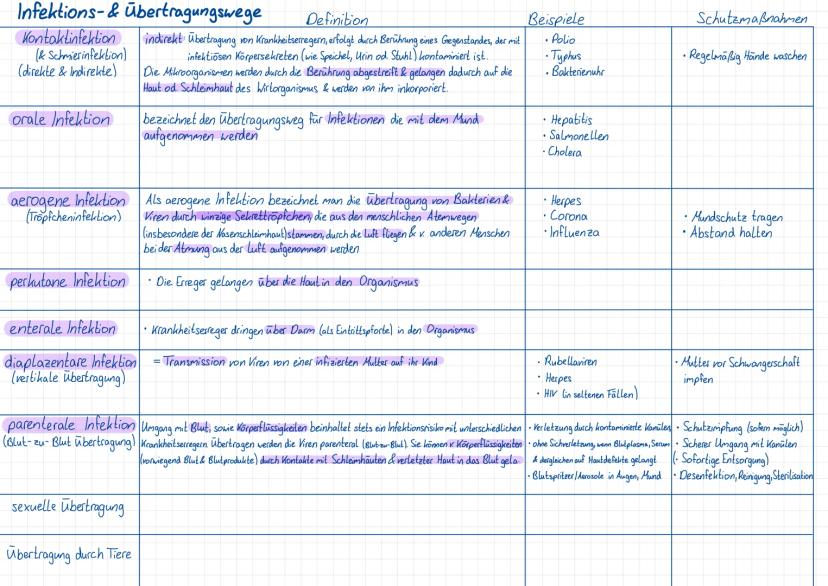 Infektions- & Übertragungswege
Definition
Beispiele
Schutzmaßnahmen
Kontaktinfektion
(& Schmierinfektion)
(direkte & Indirekte)
indirekt: Übertragung von Krankheitserregern, erfolgt durch Berührung eines Gegenstandes, der mit
infektiösen Körpersekreten (wie Speichel, Urin od. Stuhl) kontaminiert ist.
Die Mikroorganismen werden durch die Berührung abgestreift & gelangen dadurch auf die
Haut od. Schleimhaut des Wirtorganismus & werden von ihm inkorporiert.
• Polio
• Typhus
• Bakterienuhr
• Regelmäßig Hände waschen
orale Infektion
bezeichnet den Übertragungsweg für Infektionen die mit dem Mund
aufgenommen werden
• Hepatitis
• Salmonellen
• Cholera
aerogene Infektion
(Tröpfcheninfektion)
Als aerogene Infektion bezeichnet man die Übertragung von Bakterien &
Viren durch winzige Sekrettröpfchen, die aus den menschlichen Atemwegen
(insbesondere der Nasenschleimhaut) stammen, durch die Luft fliegen & v. anderen Menschen
bei der Atmung aus der Luft aufgenommen werden
• Herpes
• Corona
• Influenza
• Mundschutz tragen
• Abstand halten
perkutane Infektion
• Die Erreger gelangen über die Haut in den Organismus
enterale Infektion
• Krankheitserreger dringen über Darm (als Eintrittspforte) in den Organismus
diaplazentare Infektion
(vertikale Übertragung)
= Transmission von Viren von einer infizierten Mutter auf ihr Kind
• Rubellaviren
• Herpes
• HIV (in seltenen Fällen)
• Mutter vor Schwangerschaft
impfen
parenterale Infektion
(Blut-zu-Blut Übertragung)
Umgang mit Blut, sowie Körperflüssigkeiten beinhaltet stets ein Infektionsrisiko mit unterschiedlichen
Krankheitserregern. Übertragen werden die Viren parenteral (Blut-zu-Blut). Sie können v. Körperflüssigkeiten
(vorwiegend Blut & Blutprodukte) durch Kontakte mit Schleimhäuten & verletzter Haut in das Blut gela
• Verletzung durch kontaminierte Kanülen
• ohne Stichverletzung, wenn Blutplasma, Serum
& dergleichen auf Hautdefekte gelangt
• Blutspritzer/Aerosole in Augen, Mund
• Schutzimpfung (sofern möglich)
• Sicherer Umgang mit Kanülen
(• Sofortige Entsorgung)
• Desenfektion, Reinigung, Sterilisation
sexuelle Übertragung
Übertragung durch Tiere